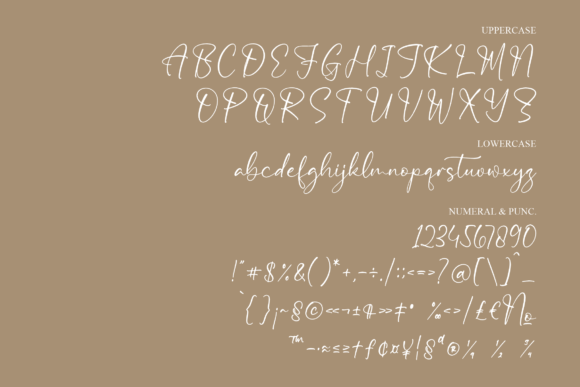 UPPERCASE
ABCDEFGHIJKLMN
OPQRSTUVWXYZ
LOWERCASE
abcdefghijklmnopqrstuvwxyz
NUMERAL & PUNC.
1234567890
!"#$%&()*+,-÷./:;<=>?@[\]^_
`{}¡~§©«¬±¶»‡° ‰<>/££№
™—·≈≤≥†ƒ¢¤¥¦§ª®¼ ½ ¾